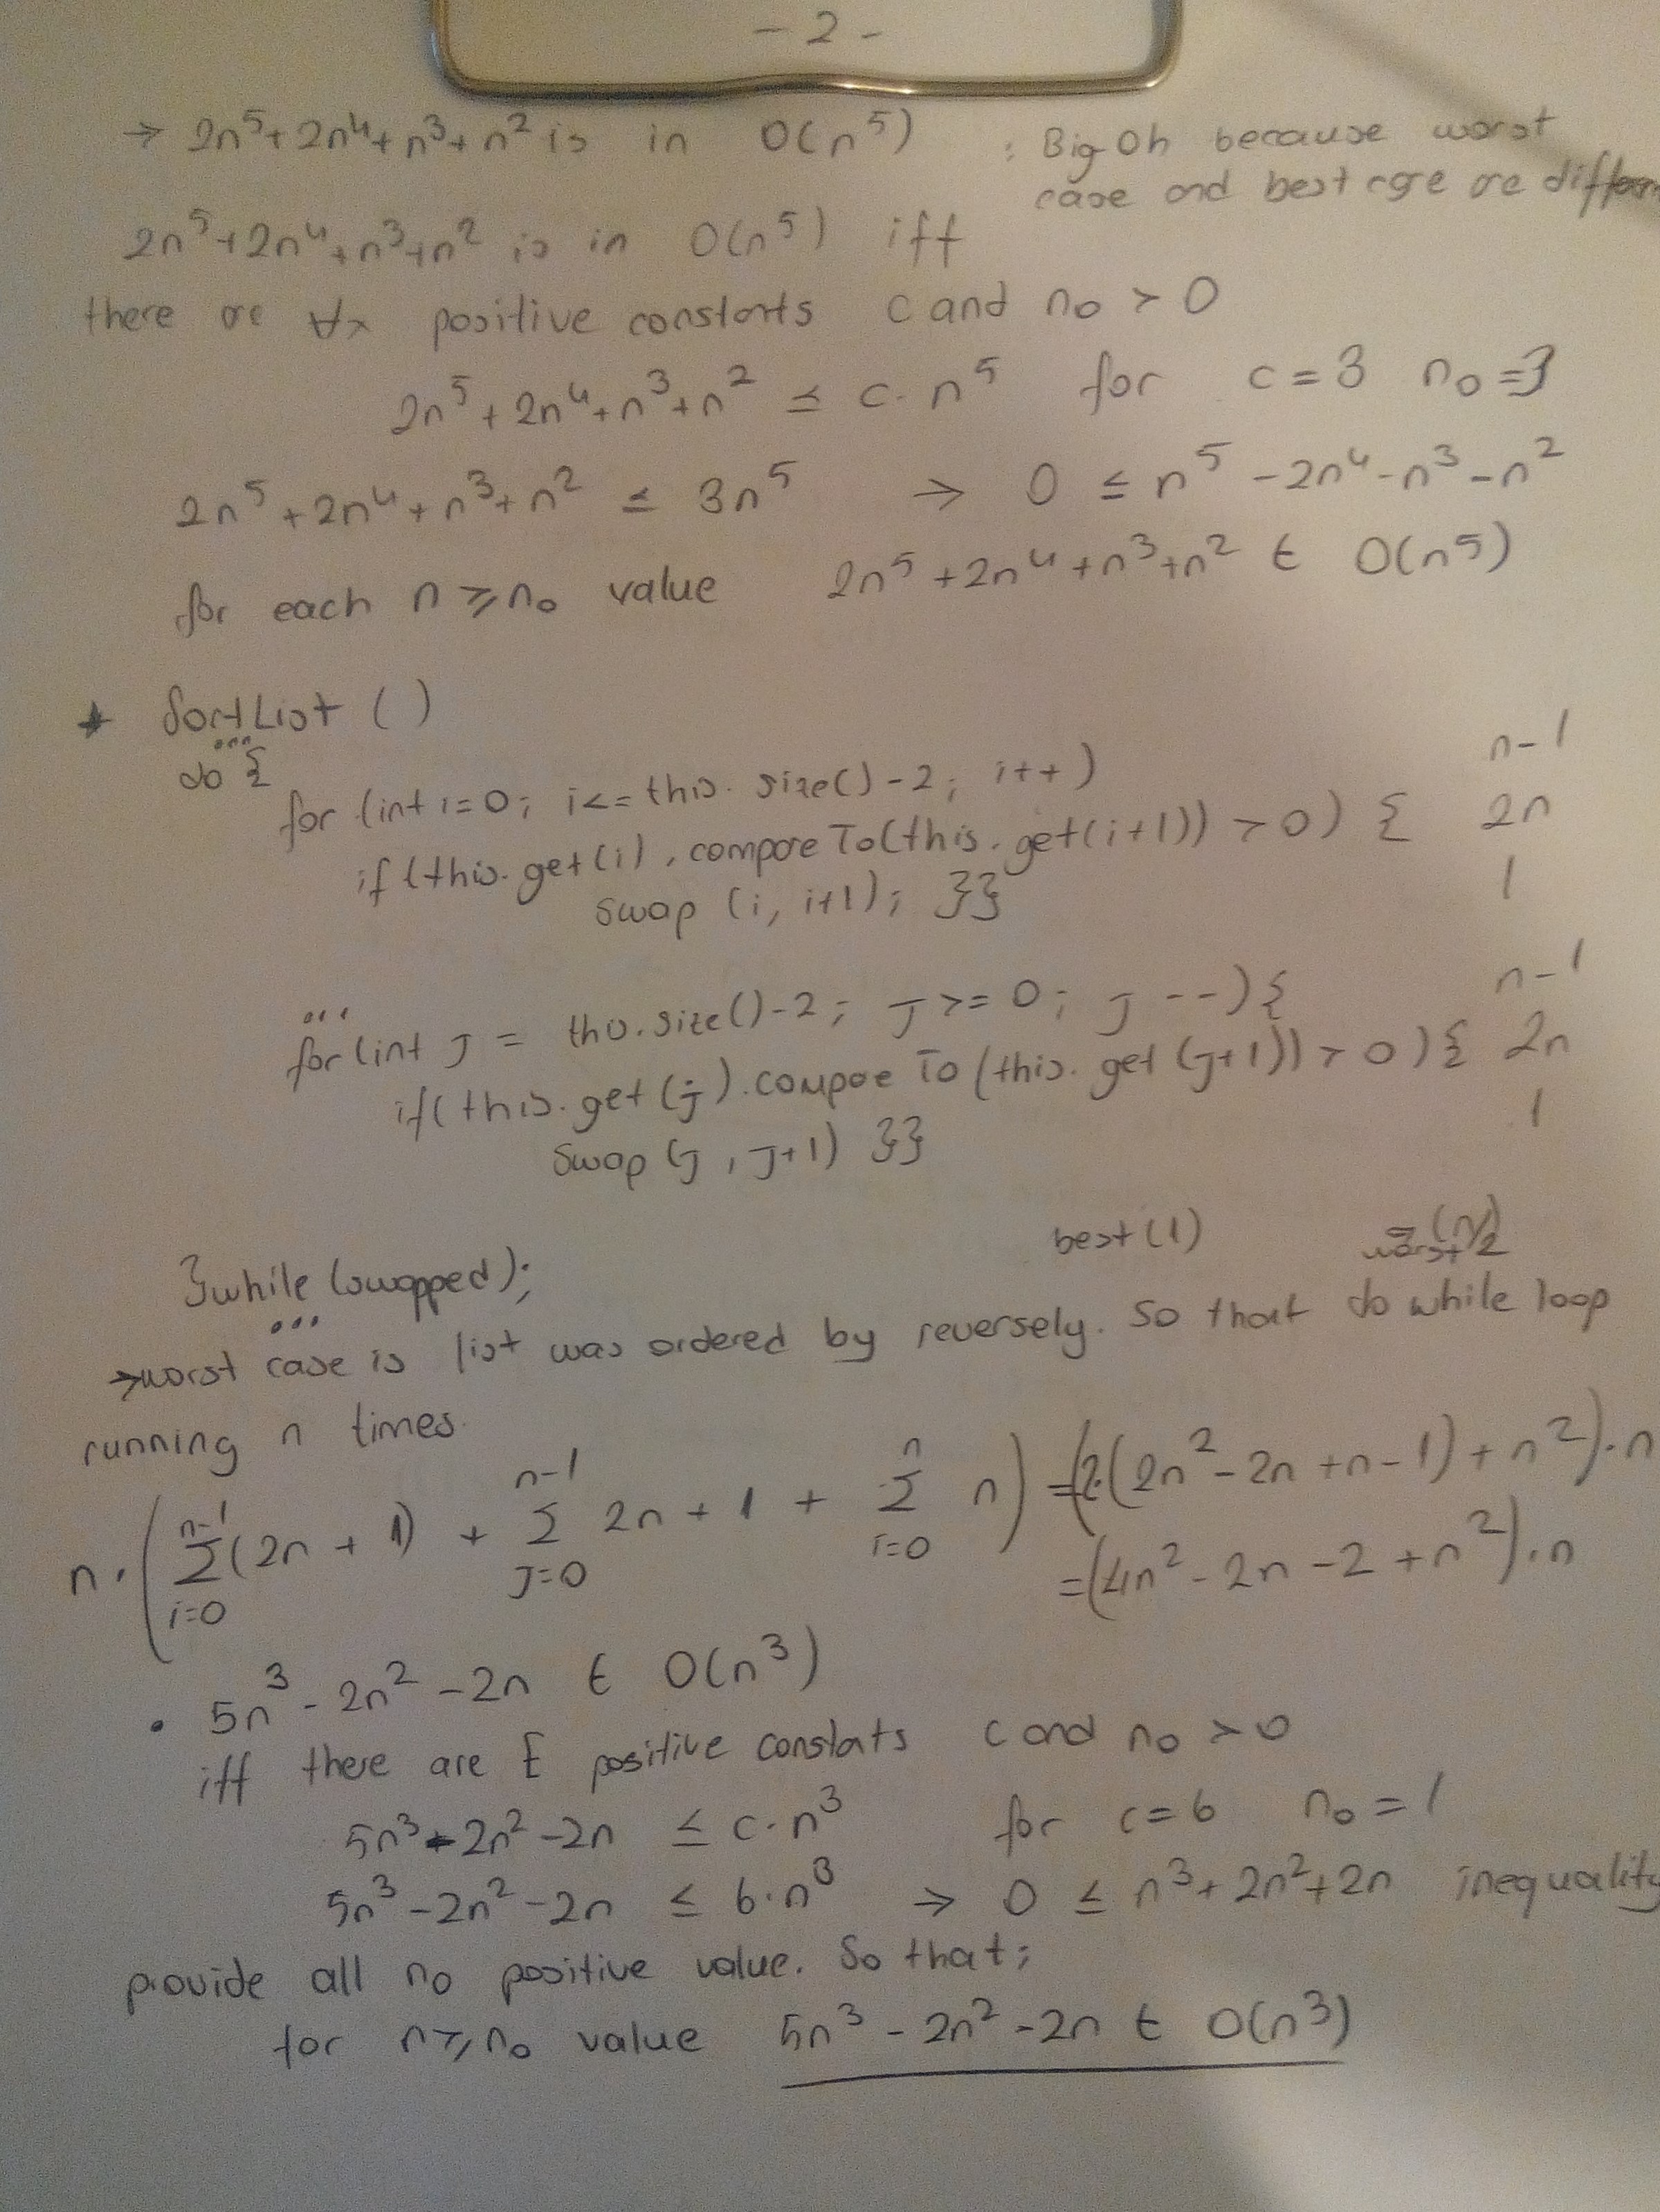 - 2 -
→ 2n⁵+2n⁴+n³+n² is in O(n⁵) : Big Oh because worst
case and best case are
2n⁵+2n⁴+n³+n² is in O(n⁵) iff
there are positive constants c and n₀ > 0
2n⁵+2n⁴+n³+n² ≤ c·n⁵ for c=3 n₀=3
2n⁵+2n⁴+n³+n² ≤ 3n⁵ → 0 ≤ n⁵-2n⁴-n³-n²
for each n≥n₀ value 2n⁵+2n⁴+n³+n² ∈ O(n⁵)
* SortList ()
...
do {
for (int i=0; i<=this.size()-2; i++) n-1
if (this.get(i).compareTo(this.get(i+1)) > 0) { 2n
swap (i, i+1); }} 1
...
for (int j = this.size()-2; j>=0; j--) { n-1
if (this.get(j).compareTo(this.get(j+1)) > 0) { 2n
swap (j, j+1) }} 1
best(1)
}while (swapped);
...
→ worst case is list was ordered by reversely. So that do while loop
running n times.
n·(∑_{i=0}^{n-1} (2n+1) + ∑_{j=0}^{n-1} 2n+1 + ∑_{i=0}^{n} n) = (2·(2n²-2n+n-1)+n²)·n
= (4n²-2n-2+n²)·n
• 5n³-2n²-2n ∈ O(n³)
iff there are E positive constats c and n₀ > 0
5n³-2n²-2n ≤ c·n³ for c=6 n₀=1
5n³-2n²-2n ≤ 6·n³ → 0 ≤ n³+2n²+2n inequality
provide all n₀ positive value. So that;
for n≥n₀ value 5n³-2n²-2n ∈ O(n³)